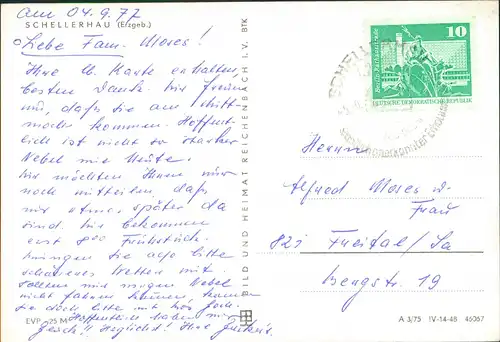 Am 04.9.77
SCHELLERHAU (Erzgeb.)
Liebe Fam. Moses!
Ihre lb. Karte erhalten,
besten Dank. Wir freuen
uns, daß sie am Mitt-
woch kommen. Hoffent-
lich ist nicht so starker
Nebel wie Heute.
Wir möchten Ihnen nur
noch mitteilen, daß
wir etwas später da
sind. Wir bekommen
erst 8°° Frühstück.
bringen Sie also bitte
schöneres Wetter mit.
Sollten wir wegen Nebel
nicht fahren können, kommen
sie doch bitte mit
Hoffentlich haben wir
Herzlichst! Ihre
EVP -,25 M
BILD UND HEIMAT REICHENBACH I. V. BTK
10
Berlin, Neptunbrunnen
DEUTSCHE DEMOKRATISCHE REPUBLIK
SCHELLERHAU
Herrn
Alfred Moses u.
Frau
821 Freital / Sa
Bergstr. 19
A 3/75 IV-14-48 46067